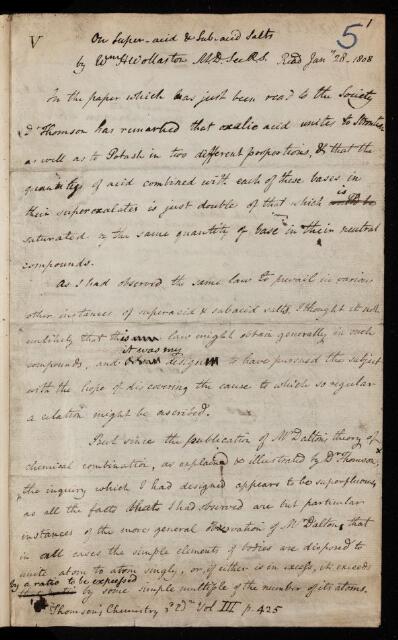 V
5
1
On Super-acid & Sub-acid Salts
by Wm H Wollaston M.D. Sec R.S. Read Jany 28. 1808
In the paper which has just been read to the Society
Dr Thomson has remarked that oxalic acid unites to Strontian
as well as to Potash in two different proportions, & that the
quantity of acid combined with each of these bases in
their superoxalates is just double of that which is
saturated by the same quantity of base in their neutral
compounds.
As I had observed the same law to prevail in various
other instances of superacid & subacid salts, I thought it not
unlikely that this law might obtain generally in such
compounds, and it was my design to have pursued the subject
with the hope of discovering the cause to which so regular
a relation might be ascribed.
But since the publication of Mr Dalton's theory of
chemical combination, as explained & illustrated by Dr Thomson,x
the inquiry which I had designed appears to be superfluous,
as all the facts that I had observed are but particular
instances of the more general observation of Mr Dalton, that
in all cases the simple elements of bodies are disposed to
unite atom to atom singly, or, if either is in excess, it exceeds
by a ratio to be expressed by some simple multiple of the number of its atoms.
x Thomson's Chemistry 3d Edn Vol III p. 425